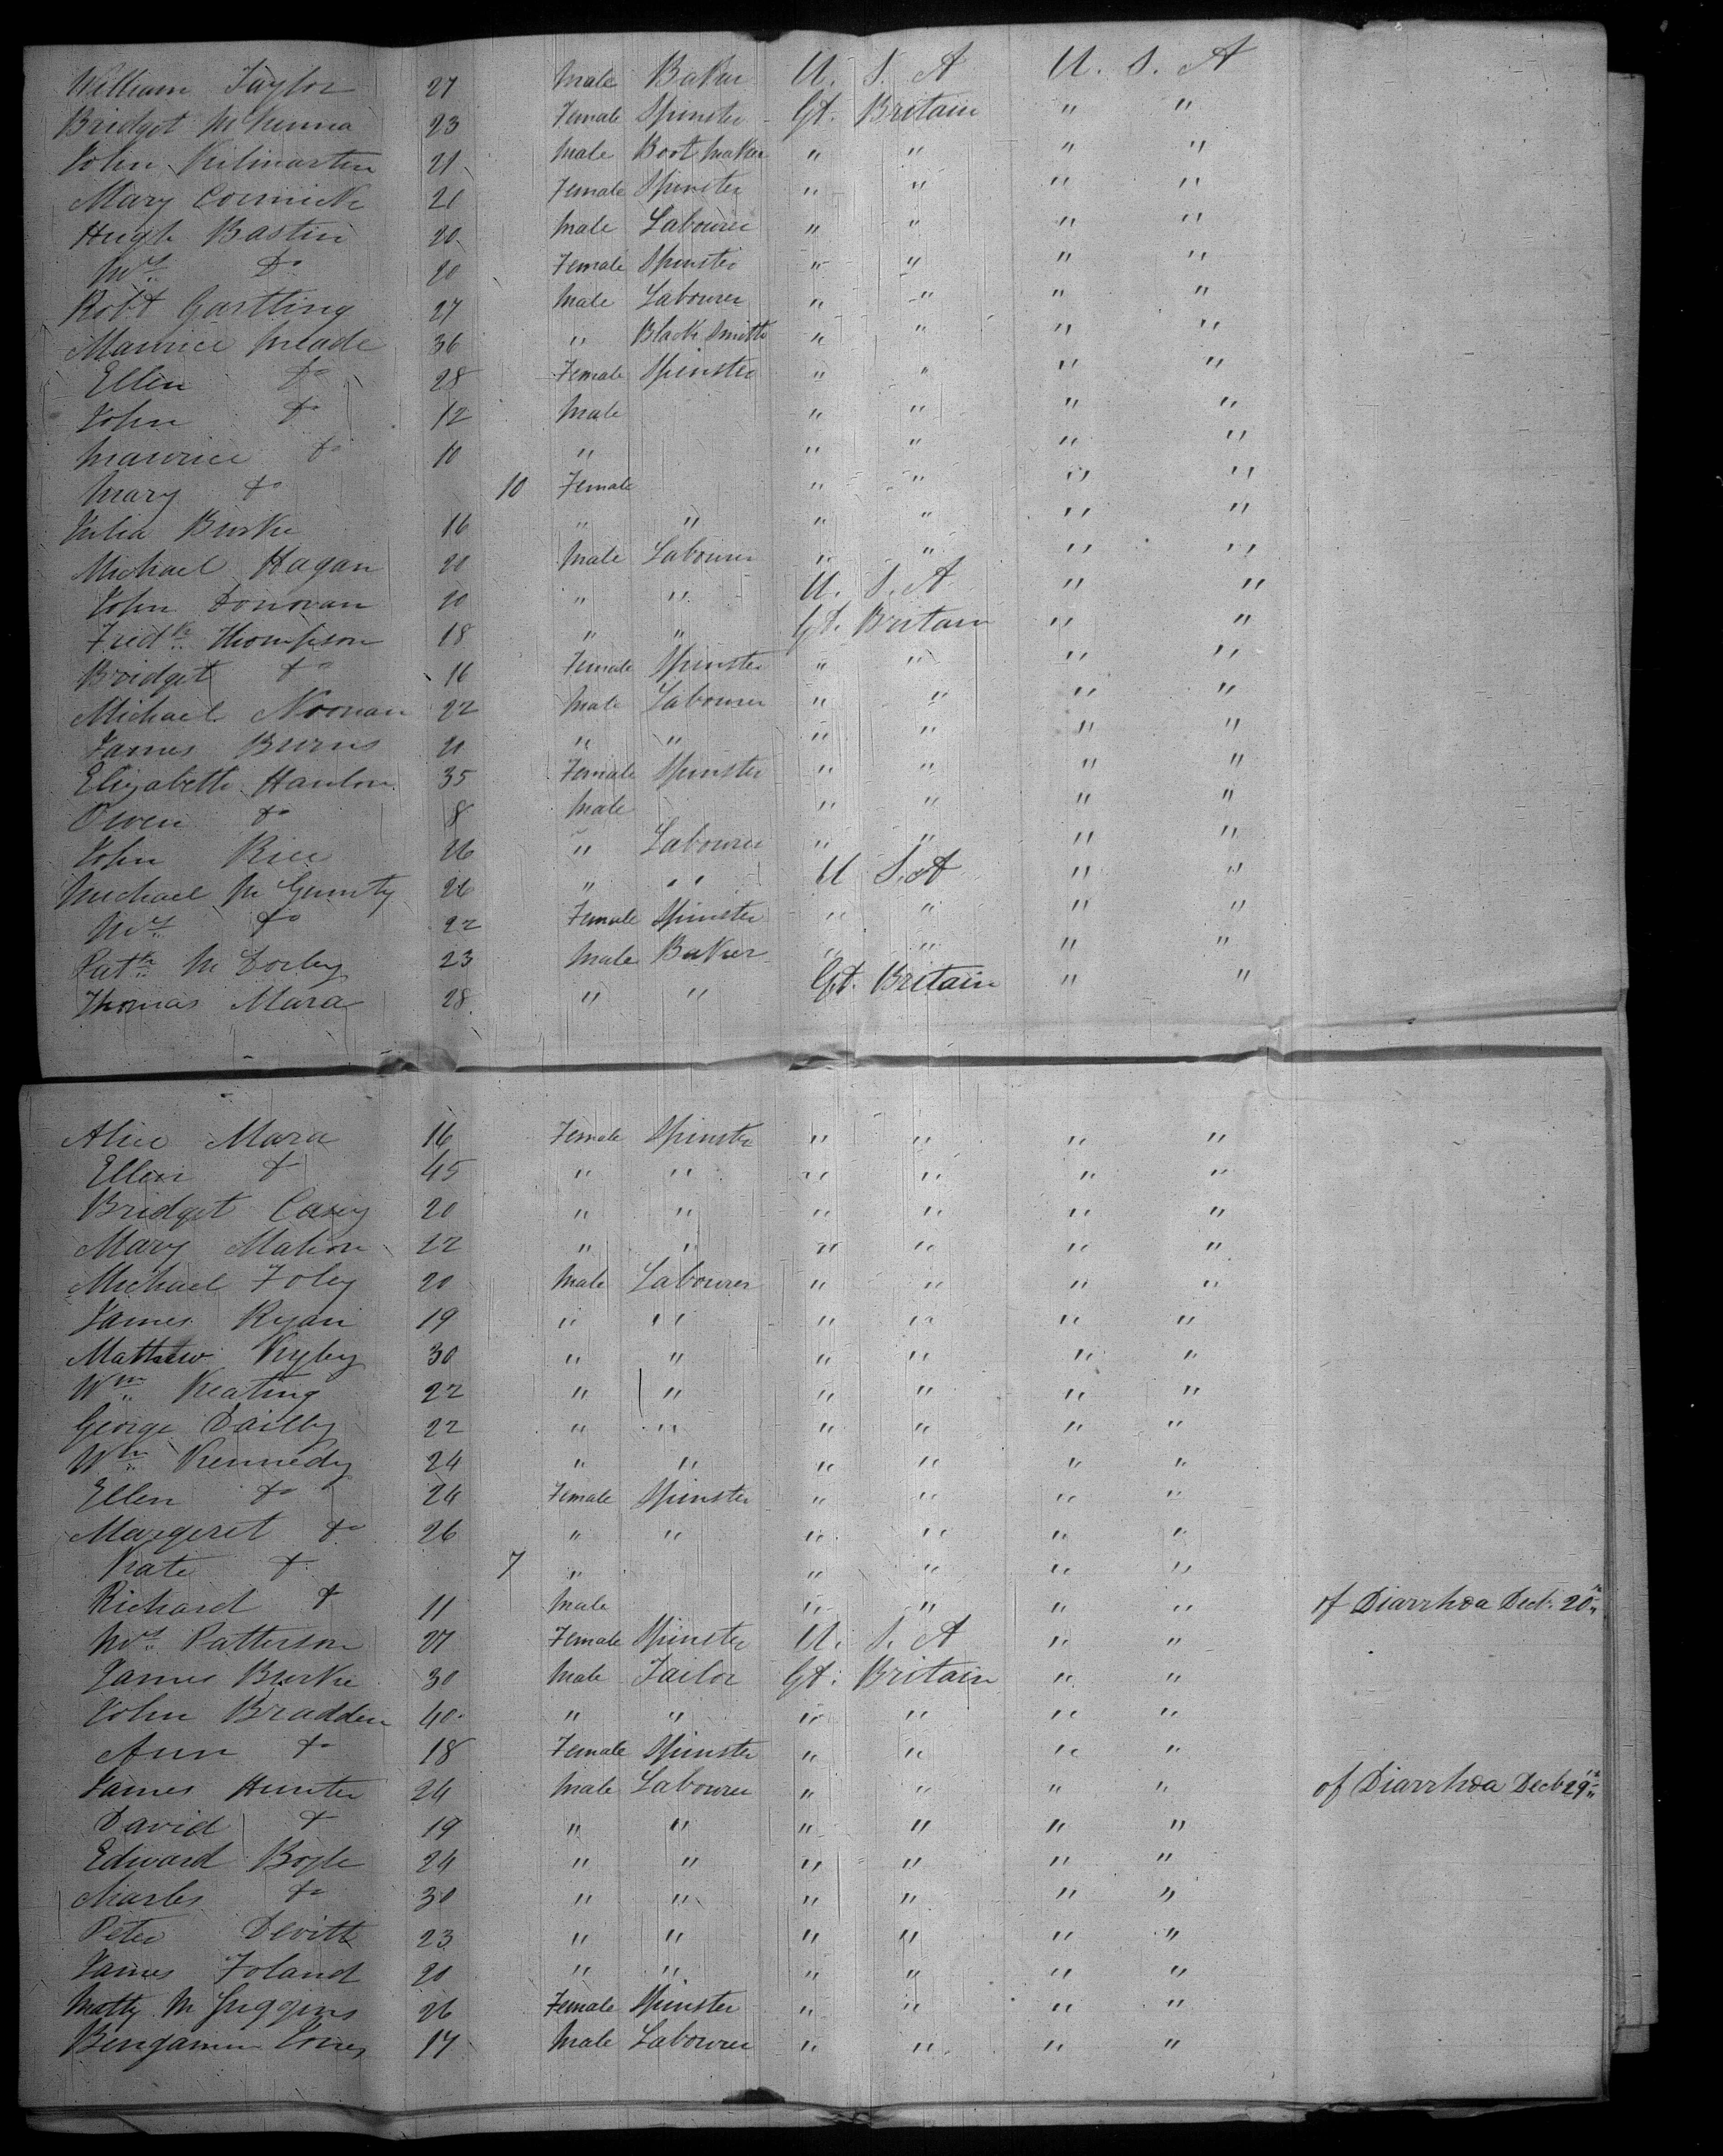 William Taylor 27 Male Baker U. S. A U. S. A
Bridget McKenna 23 Female Spinster Gt. Britain " "
John Kilmartin 21 Male Boot Maker " " " "
Mary Cormick 20 Female Spinster " " " "
Hugh Bastin 20 Male Labourer " " " "
Mrs Do 20 Female Spinster " " " "
Robt Gastling 27 Male Labourer " " " "
Maurice Meade 36 " Black Smith " " " "
Ellen Do 28 Female Spinster " " " "
John Do 12 Male " " " "
Maurice Do 10 " " " " "
Mary Do 10 Female " " " "
Julia Burke 16 " " " " " "
Michael Hagan 20 Male Labourer " " " "
John Donovan 20 " " U. S. A " "
Fredk Thompson 18 " " Gt. Britain " "
Bridget Do 16 Female Spinster " " " "
Michael Noonan 22 Male Labourer " " " "
James Burns 21 " " " " " "
Elizabeth Hanlon 35 Female Spinster " " " "
Owen Do 8 Male " " " "
John Rice 26 " Labourer " " " "
Michael McGinnty 26 " " U S. A " "
Mrs Do 22 Female Spinster " " " "
Patk McDorby 23 Male Baker " " " "
Thomas Mara 28 " " Gt. Britain " "
Alice Mara 16 Female Spinster " " " "
Ellen Do 45 " " " " " "
Bridget Casey 20 " " " " " "
Mary Mahon 22 " " " " " "
Michael Foley 20 Male Labourer " " " "
James Ryan 19 " " " " " "
Mathew Kyley 30 " " " " " "
Wm Keating 22 " " " " " "
George Dailby 22 " " " " " "
Wm Kennedy 24 " " " " " "
Ellen Do 24 Female Spinster " " " "
Margeret Do 26 " " " " " "
Kate Do 7 " " " " "
Richard Do 11 Male " " " " of Diarrhœa Decb. 20th
Mrs Patterson 27 Female Spinster U. S. A " "
James Burke 30 Male Tailor Gt. Britain " "
John Bradden 40 " " " " " "
Ann Do 18 Female Spinster " " " "
James Hunter 24 Male Labourer " " " " of Diarrhœa Decb 29th
David Do 19 " " " " " "
Edward Boyle 24 " " " " " "
Charles Do 30 " " " " " "
Peter Devitt 23 " " " " " "
James Foland 20 " " " " " "
Matty McGuggins 26 Female Spinster " " " "
Bengamin Jones 17 Male Labourer " " " "